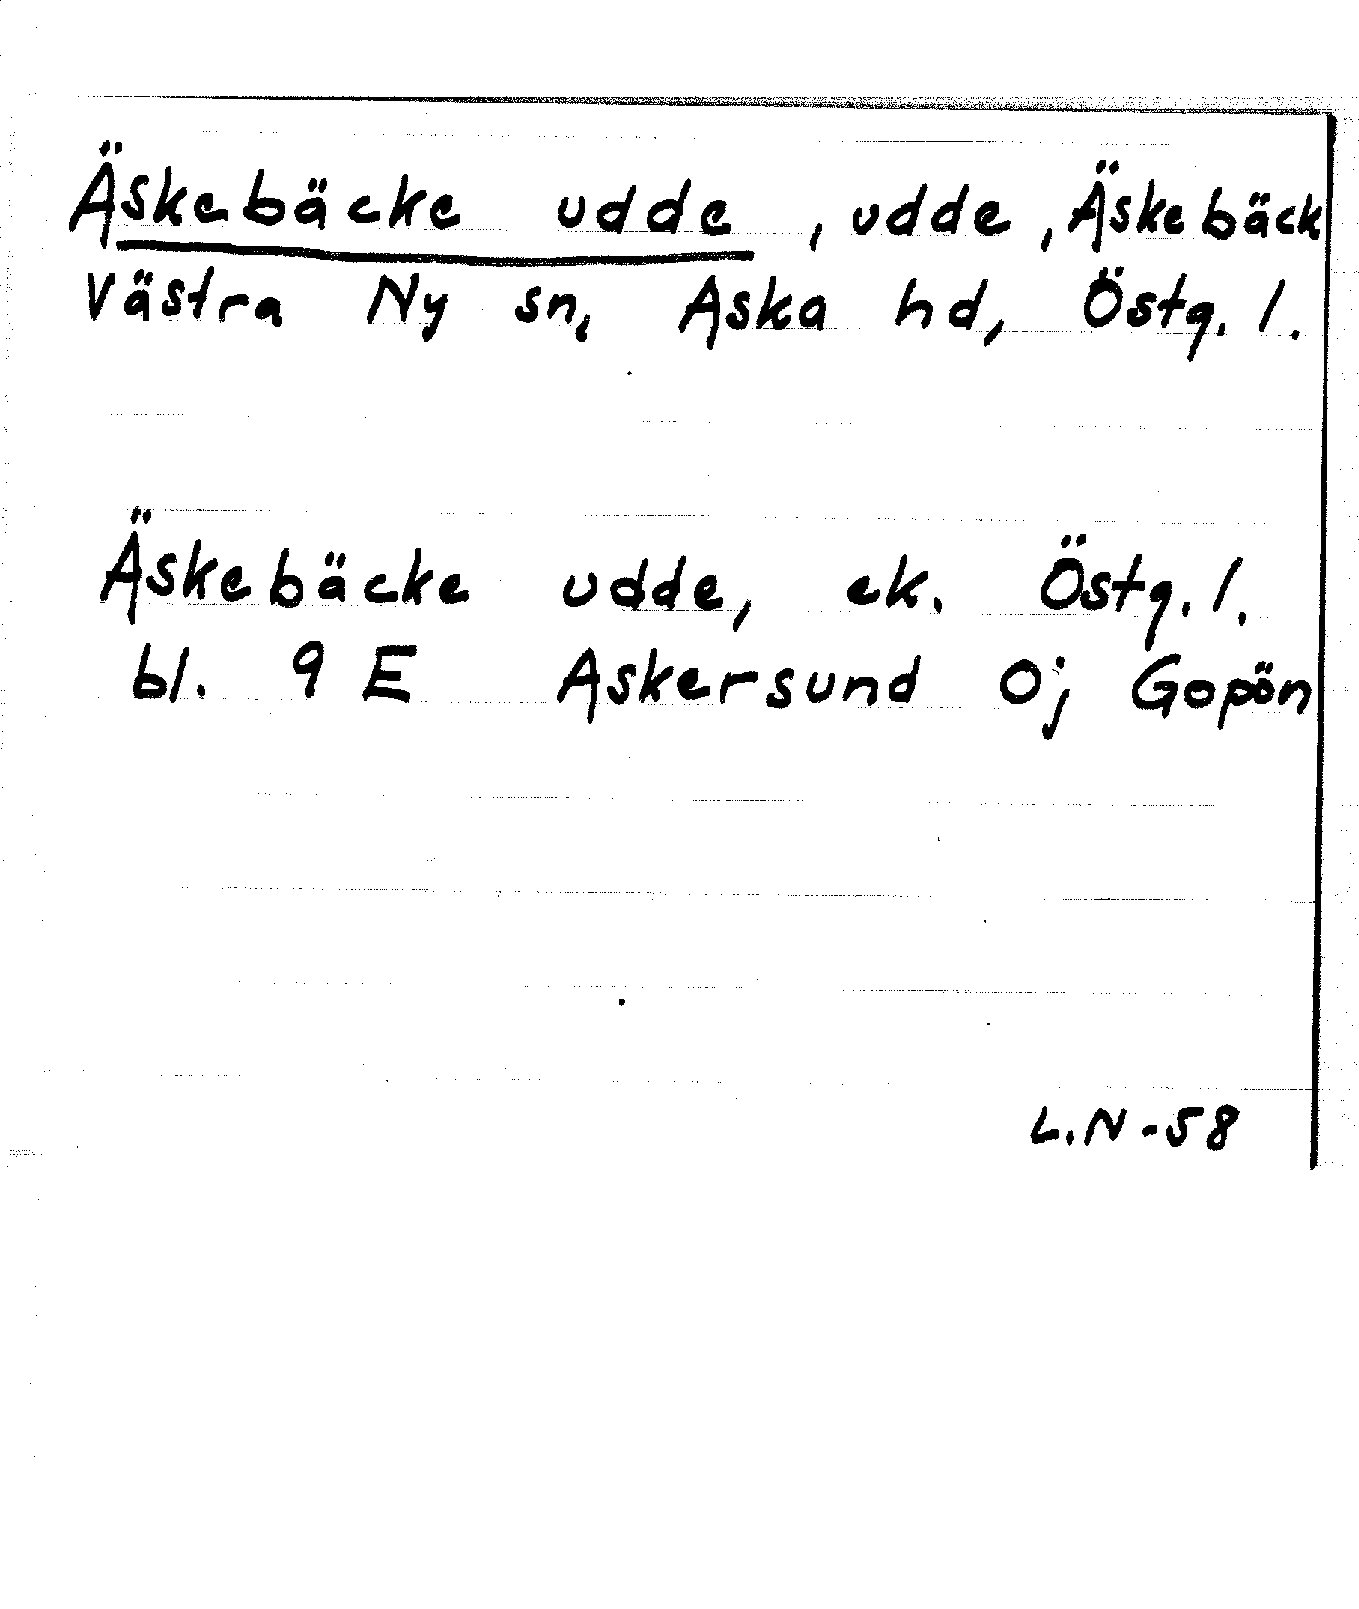 Äskebäcke udde, udde, Äskebäck
Västra Ny sn, Aska hd, Östg. l.
Äskebäcke udde, ek. Östg. l.
bl. 9 E Askersund Oj Gopön
L.N-58